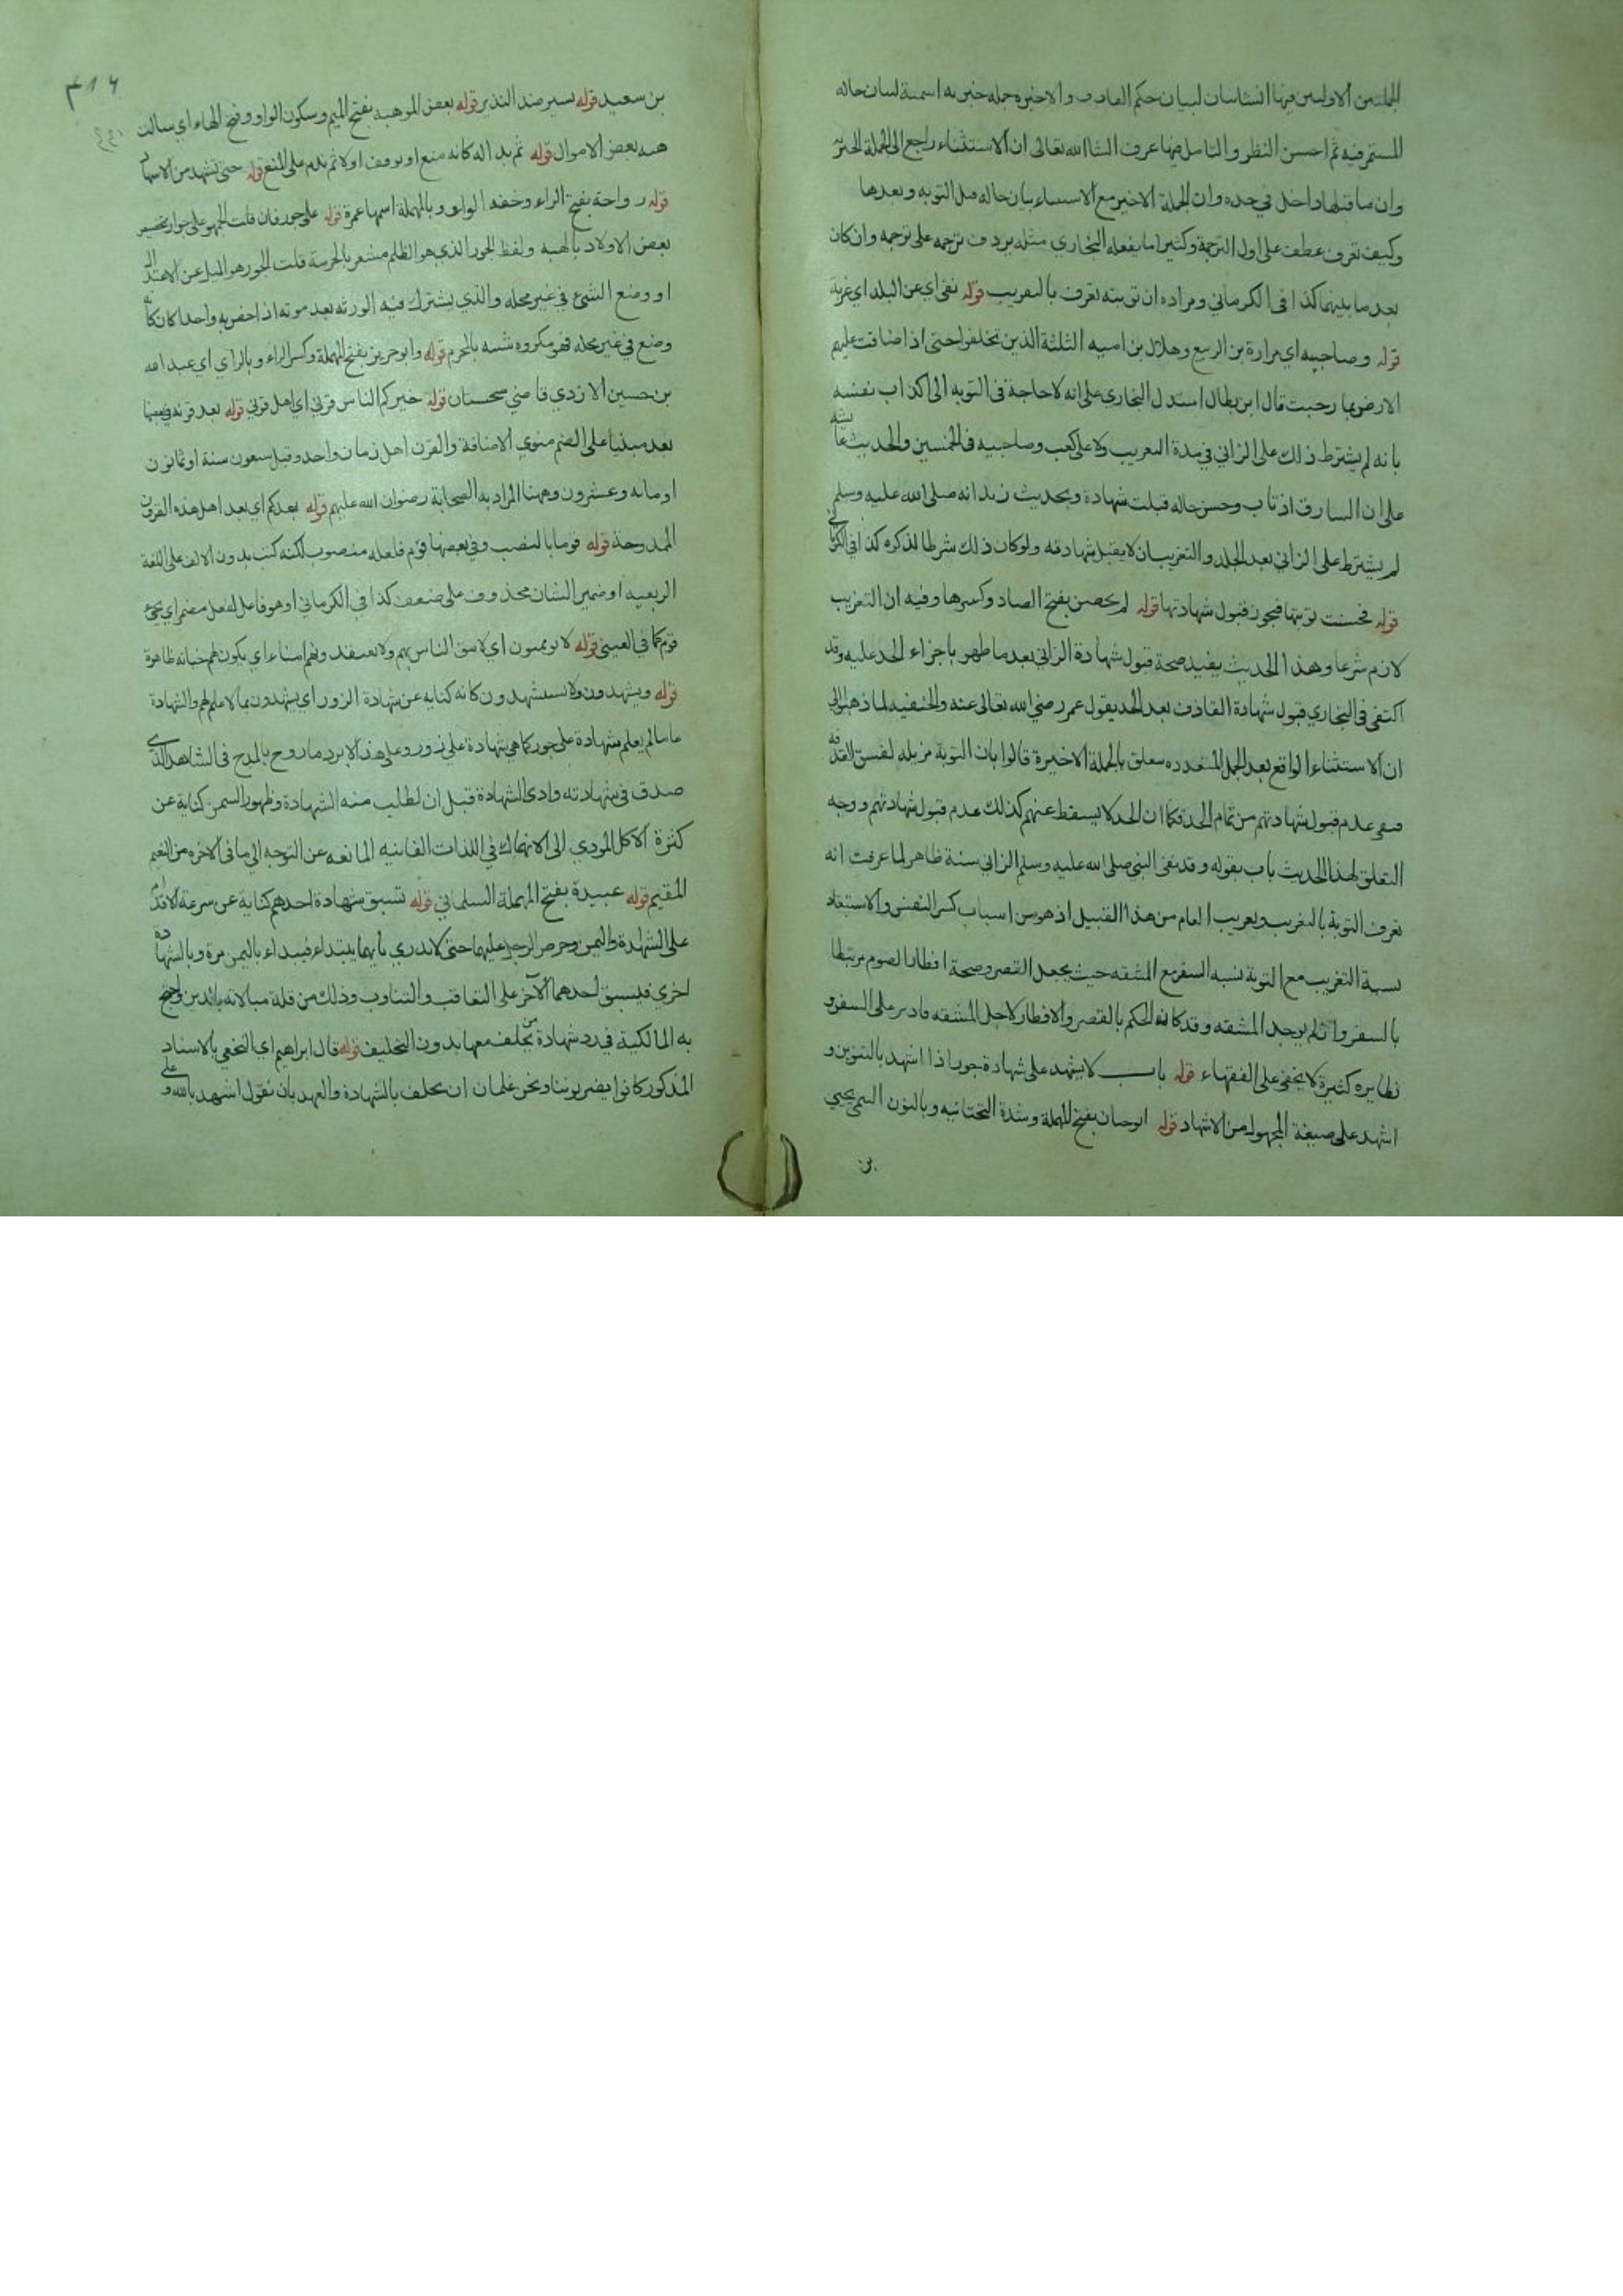 الجملتين الاوليين فيها انشائيتان لبيان حكم القاذف والاخيره جمله خبريه اسمية لبيان حاله
المستمر فيه ثم احسن النظر والتامل فيها عرف انشا الله تعالى ان الاستثناء راجع الى الجملة الخبريه
وان ما قبلها داخل في حده وان الجملة الاخير مع الاستثناء بيان حاله قبل التوبه وبعدها
وكيف تعرف عطف على اول الترجمة وكثيرا ما يفعله البخاري مثله يردف ترجمه على ترجمه وان كان
بعد ما بينهما كذا في الكرماني ومراده ان توبته تعرف بالتغريب قوله نفى اي عن البلد اي غربه
قوله وصاحبيه اي مرارة بن الربيع وهلال بن اميه الثلثة الذين تخلفوا حتى اذا ضاقت عليهم
الارض بما رحبت قال ابن بطال استدل البخاري على انه لا حاجة في التوبه الى اكذاب نفسه
بانه لم يشترط ذلك على الزاني في مدة التغريب ولا على كعب وصاحبيه في الخمسين والحديث عائشه
على ان السارق اذ تاب وحسن حاله قبلت شهادة وبحديث زيد انه صلى الله عليه وسلم
لم يشترط على الزاني بعد الجلد والتغريب ان لا يقبل شهادته ولو كان ذلك شرطا لذكره كذا في الكرماني
قوله فحسنت توبتها فيجوز قبول شهادتها قوله لم يحصن بفتح الصاد وكسرها وفيه ان التغريب
لازم شرعا وهذا الحديث يفيد صحة قبول شهادة الزاني بعد ما طهر باجزاء الحد عليه وقد
اكتفى في البخاري قبول شهادة القاذف بعد الحد بقول عمر رضي الله تعالى عنه والحنفيه لما ذهبوا الى
ان الاستثناء الواقع بعد الجمل المتعدده متعلق بالجملة الاخيرة قالوا بان التوبة مزيله لفسق القذفه
فبقى عدم قبول شهادتهم من تمام الحد فكما ان الحد لا يسقط عنهم كذلك عدم قبول شهادتهم ووجه
التعلق لهذا الحديث باب بقوله وقد نفى النبي صلى الله عليه وسلم الزاني سنة ظاهر لما عرفت انه
تعرف التوبة بالتغريب وتغريب العام من هذا القبيل اذ هو من اسباب كسر النفس والاستبعاد
نسبة التغريب مع التوبة نسبه السفر مع المشقه حيث يجعل القصر وصحة افطار الصوم مرتبطا
بالسفر وان لم يوجد المشقه وقد كان له الحكم بالقصر والافطار لاجل المشقه فادير على السفر و
نظايره كثيرة لا يخفى على الفقهاء قوله باب لا يشهد على شهادة جور اذا اشهد بالتنوين و
اشهد على صيغة المجهول من الاشهاد قوله ابو حيان بفتح المهملة وشدة التحتانيه وبالنون التيمي يحيى
بن
٣١٦
بن سعيد قوله بسير ضد النذير قوله بعض الموهبه بفتح الميم وسكون الواو وفتح الهاء اي سالت
هبه بعض الاموال قوله ثم بدا له كانه منع او توقف اولا ثم ندم على المنع قوله حتى تشهد من الاشهاد
قوله رواحة بفتح الراء وخفه الواو وبالمهملة اسمها عمرة قوله على جور فان قلت الجمهور على جواز تخصيص
بعض الاولاد بالهبه ولفظ الجور الذي هو الظلم مشعر بالحرمة قلت الجور هو الميل عن الاعتدال
او وضع الشيء في غير محله والذي يشترك فيه الورثه بعد موته اذ اخص به واحدا كان كانه
وضع في غير محله فهو مكروه شبيه بالمحرم قوله وابو حريز بفتح المهملة وكسر الراء وبالزاي اي عبد الله
بن حسين الازدي قاضي سجستان قوله خيركم الناس قرني اي اهل قرني قوله بعد قرنه في بعضها
بعد مبنيا على الضم منوي الاضافة والقرن اهل زمان واحد وقيل سبعون سنة او ثمانون
او مايه وعشرون وههنا المراد به الصحابة رضوان الله عليهم قوله بعدكم اي بعد اهل هذه القرون
الممدوحة قوله قوما بالنصب وفي بعضها قوم فلعله منصوب لكنه كتب بدون الالف على اللغة
الربعيه او ضمير الشان محذوف على ضعف كذا في الكرماني او هو فاعل لفعل مضمر اي يجيء
قوم كما في العيني قوله لا يوتمنون اي لا يثق الناس بهم ولا يعتقدونهم امناء اي يكون لهم خيانه ظاهرة
قوله ويشهدون ولا يستشهدون كانه كنايه عن شهادة الزور اي يشهدون بما لا علم لهم والشهادة
ما لم يعلم شهادة على جور كما هي شهادة على زور وعلى هذا لا يرد ما روح بالمدح في الشاهد الذي
صدق في شهادته وادى الشهادة قبل ان لطلب منه الشهادة وظهور السمن كناية عن
كثرة الاكل المودي الى الانهماك في اللذات الفانيه المانعه عن التوجه الى ما في الاخره من النعيم
المقيم قوله عبيدة بفتح المهملة السلماني قوله تسبق شهادة احدهم كناية عن سرعة الاقدام
على الشهادة واليمين وحرص الرجل عليهما حتى لا يدري بايهما يبتداء فيبداء باليمين مرة وبالشهادة
اخرى فليسبق احدهما الآخر على التعاقب والتناوب وذلك من قلة مبالاته بالدين واحتج
به المالكية في رد شهادة من يحلف معها بدون التحليف قوله قال ابراهيم اي النخعي بالاسناد
المذكور كانوا يضربوننا ونحن غلمان ان يحلف بالشهادة والعهد بان نقول اشهد بالله وعلى